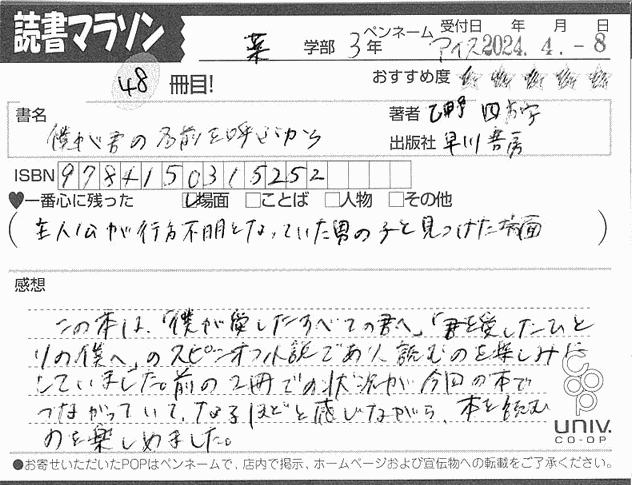 読書マラソン
薬 学部 3年
ペンネーム アイス
受付日 年 月 日
2024. 4. -8
48 冊目!
おすすめ度
書名 僕が君の名前を呼ぶから
著者 乙野 四方字
出版社 早川書房
ISBN 9784150315252
♥一番心に残った □場面 □ことば □人物 □その他
(主人公が行方不明となっていた男の子と見つけた場面)
感想
この本は、「僕が愛したすべての君へ」「君を愛したひと
りの僕へ」のスピンオフ小説であり、読むのを楽しみに
していました。前の2冊での状況が今回の本で
つながっていて、なるほどと感じながら、本を読む
のを楽しめました。
coop
UNIV.
CO-OP
●お寄せいただいたPOPはペンネームで、店内で掲示、ホームページおよび宣伝物への転載をご了承ください。